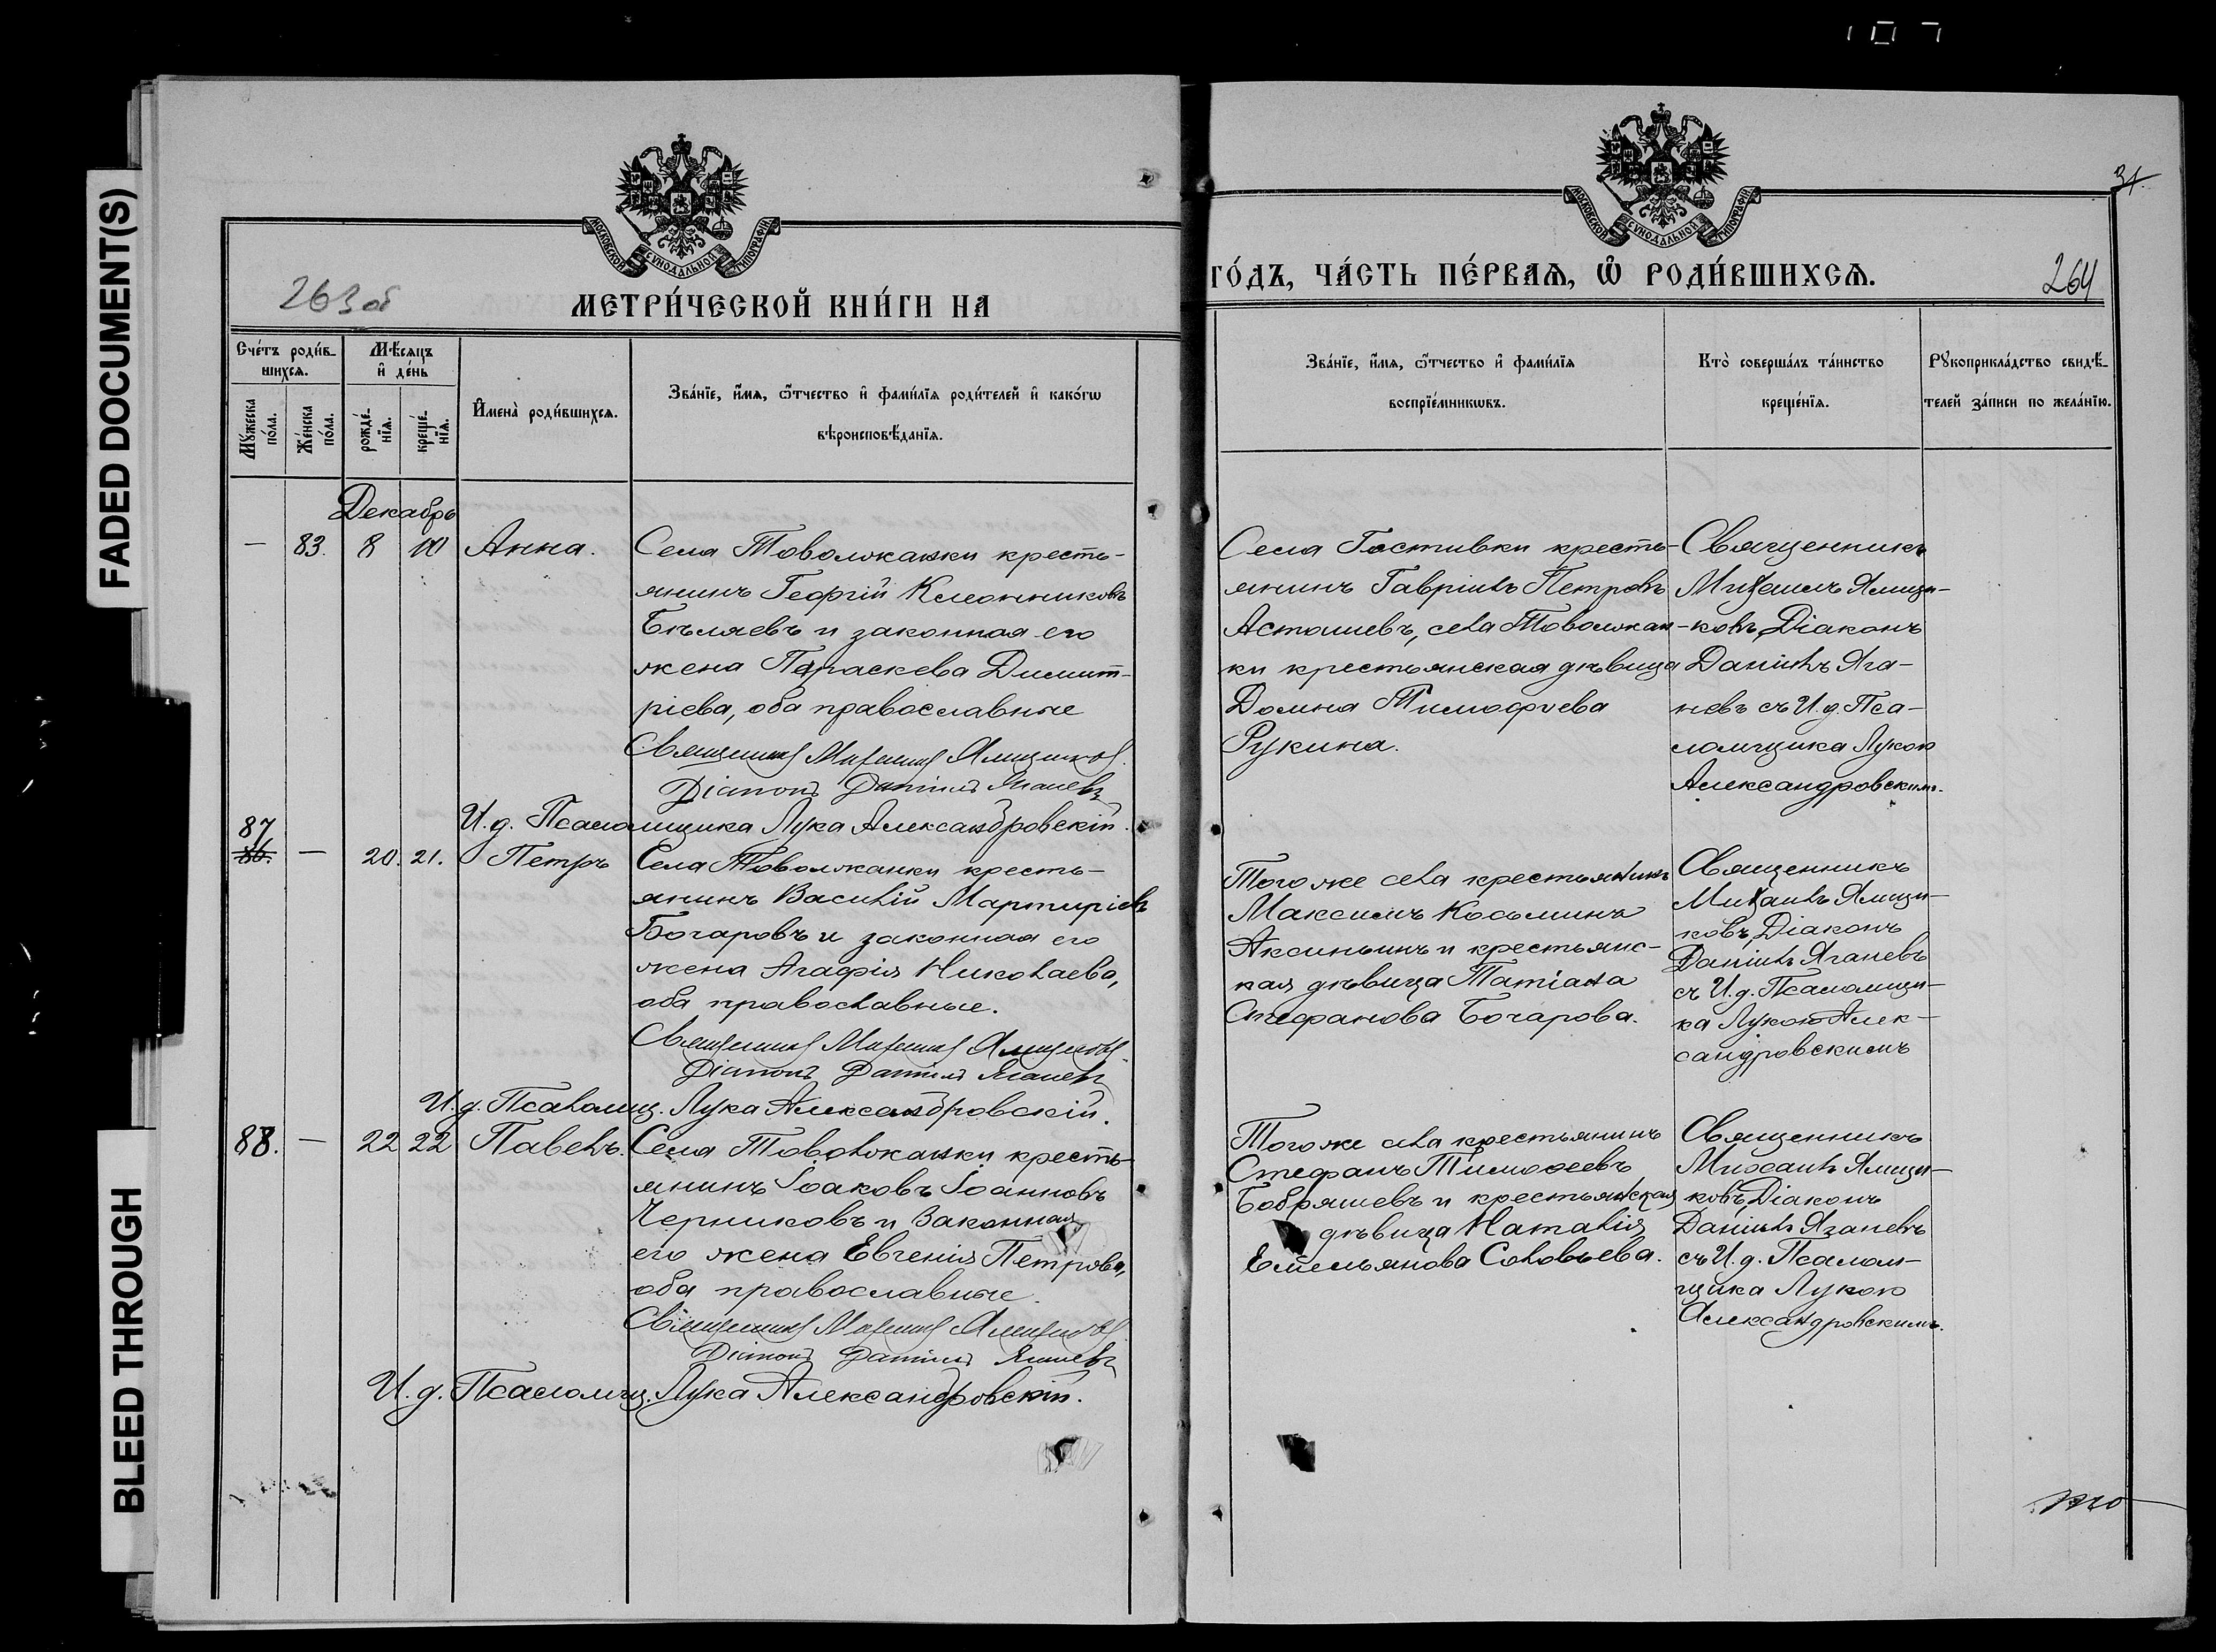 FADED DOCUMENT(S)
BLEED THROUGH
МОСКОВСКОЙ СѴНОДАЛЬНОЙ ТИПОГРАФІИ
263 об
МЕТРИ́ЧЕСКОЙ КНИ́ГИ НА
Сче́тъ роди́в-
шихсѧ.
Мꙋ́жеска
по́ла.
Же́нска
по́ла.
Мѣ́сѧцъ
и҆ де́нь
рожде́-
нїѧ.
креще́-
нїѧ.
И҆мена̀ роди́вшихсѧ.
Зва́нїе, и҆́мѧ, ѻ҆́тчество и҆ фами́лїѧ роди́телей и҆ како́гѡ
вѣроисповѣ́данїѧ.
Декабрь
— 83. 8 10 Анна. Села Товолжанки кресть-
янинъ Георгій
Бѣляевъ и законная его
жена Параскева Димит-
ріева, оба православные
Священникъ Михаилъ Ямщиковъ.
Діаконъ Даніилъ Яганевъ
И. д. Псаломщика Лука Александровскій.
87
86. — 20. 21. Петръ Села Товолжанки кресть-
янинъ Василій Мартиріевъ
Бочаровъ и законная его
жена Агафія Николаева,
оба православные.
Священникъ Михаилъ Ямщиковъ.
Діаконъ Даніилъ Яганевъ
И. д. Псаломщ. Лука Александровскій.
88. — 22 22 Павелъ. Села Товолжанки кресть-
янинъ Іоаковъ Іоанновъ
Черниковъ и Законная
его жена Евгенія Петрова,
оба православные.
Священникъ Михаилъ Ямщиковъ
Діаконъ Даніилъ Яганевъ
И. д. Псаломщ. Лука Александровскій.
МОСКОВСКОЙ СѴНОДАЛЬНОЙ ТИПОГРАФІИ
31.
ГО́ДЪ, ЧА́СТЬ ПЕ́РВАѦ, Ѡ҆ РОДИ́ВШИХСѦ.
264
Зва́нїе, и҆́мѧ, ѻ҆́тчество и҆ фами́лїѧ
воспрїе́мникѡвъ.
Кто̀ соверша́лъ та́инство
креще́нїѧ.
Рꙋкоприкла́дство свидѣ́-
телей за́писи по жела́нїю.
Села Гостивки кресть-
янинъ Гавріилъ Петровъ
Асташевъ, села Товолжан-
ки крестьянская дѣвица
Домна Тимофеева
Рукина.
Священникъ
Михаилъ Ямщи-
ковъ, Діаконъ
Даніилъ Яга-
невъ съ И. д. Пса-
ломщика Лукою
Александровскимъ.
Того же села крестьянинъ
Максимъ Косьминъ
Аксиньинъ и крестьянс-
кая дѣвица Татіана
Стефанова Бочарова.
Священникъ
Михаилъ Ямщи-
ковъ, Діаконъ
Даніилъ Яганевъ
съ И. д. Псаломщи-
ка Лукою Алек-
сандровскимъ
Того же села крестьянинъ
Стефанъ Тимоѳеевъ
Бобряшевъ и крестьянская
дѣвица Наталія
Емельянова Соловьева.
Священникъ
Михаилъ Ямщи-
ковъ, Діаконъ
Даніилъ Яганевъ
съ И. д. Псалом-
щика Лукою
Александровскимъ.